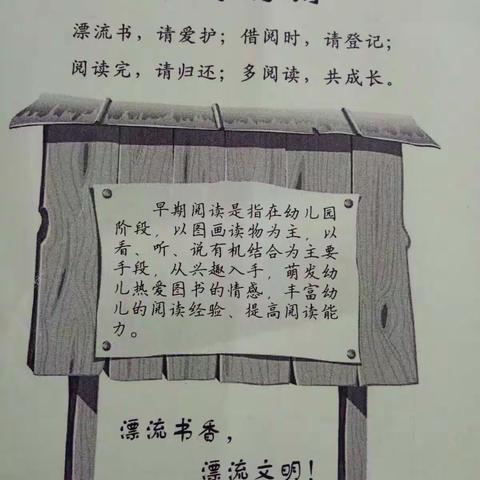 漂流书，请爱护；借阅时，请登记；
阅读完，请归还；多阅读，共成长。
早期阅读是指在幼儿园
阶段，以图画读物为主，以
看、听、说有机结合为主要
手段，从兴趣入手，萌发幼
儿热爱图书的情感，丰富幼
儿的阅读经验、提高阅读能
力。
漂流书香，
漂流文明！